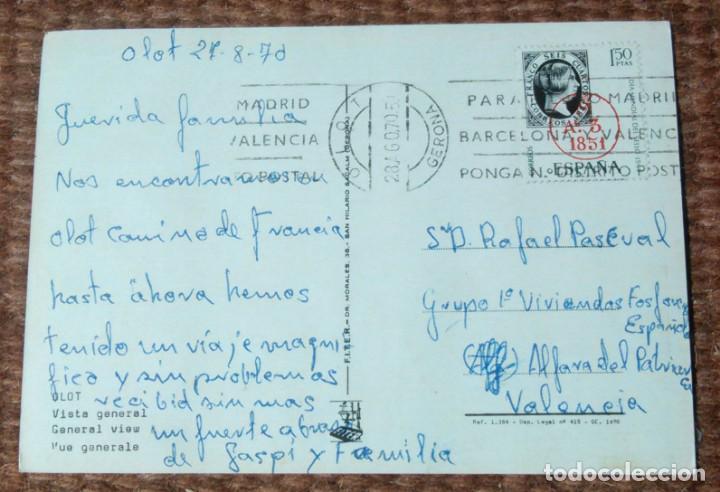 Olot 27-8-70
Querida familia
Nos encontramos en
olot camino de Francia
hasta ahora hemos
tenido un viaje magni
fico y sin problemas
recibid sin mas
un fuerte abrazo
de Gaspi y Familia
OLOT
Vista general
General view
Vue generale
F.I.T.E.R.- DR. MORALES, 38.- SAN HILARIO SACALM (GERONA)
MADRID
VALENCIA
POSTAL
OLOT
28.AGO.70
GERONA
PARA MADRID
BARCELONA Y VALENCIA
PONGA N. DISTRITO POSTAL
FRANCO SEIS CUARTOS
CORREOS
1'50
PTAS
A. 3.
1851
CORREOS
ESPAÑA
Sr. D. Rafael Pascual
Grupo 1º Viviendas
Española
Alfara del Patriarca
Valencia
Ref. 1.184 - Dep. Legal nº 415 - GE. 1970
todocoleccion
todocoleccion.net